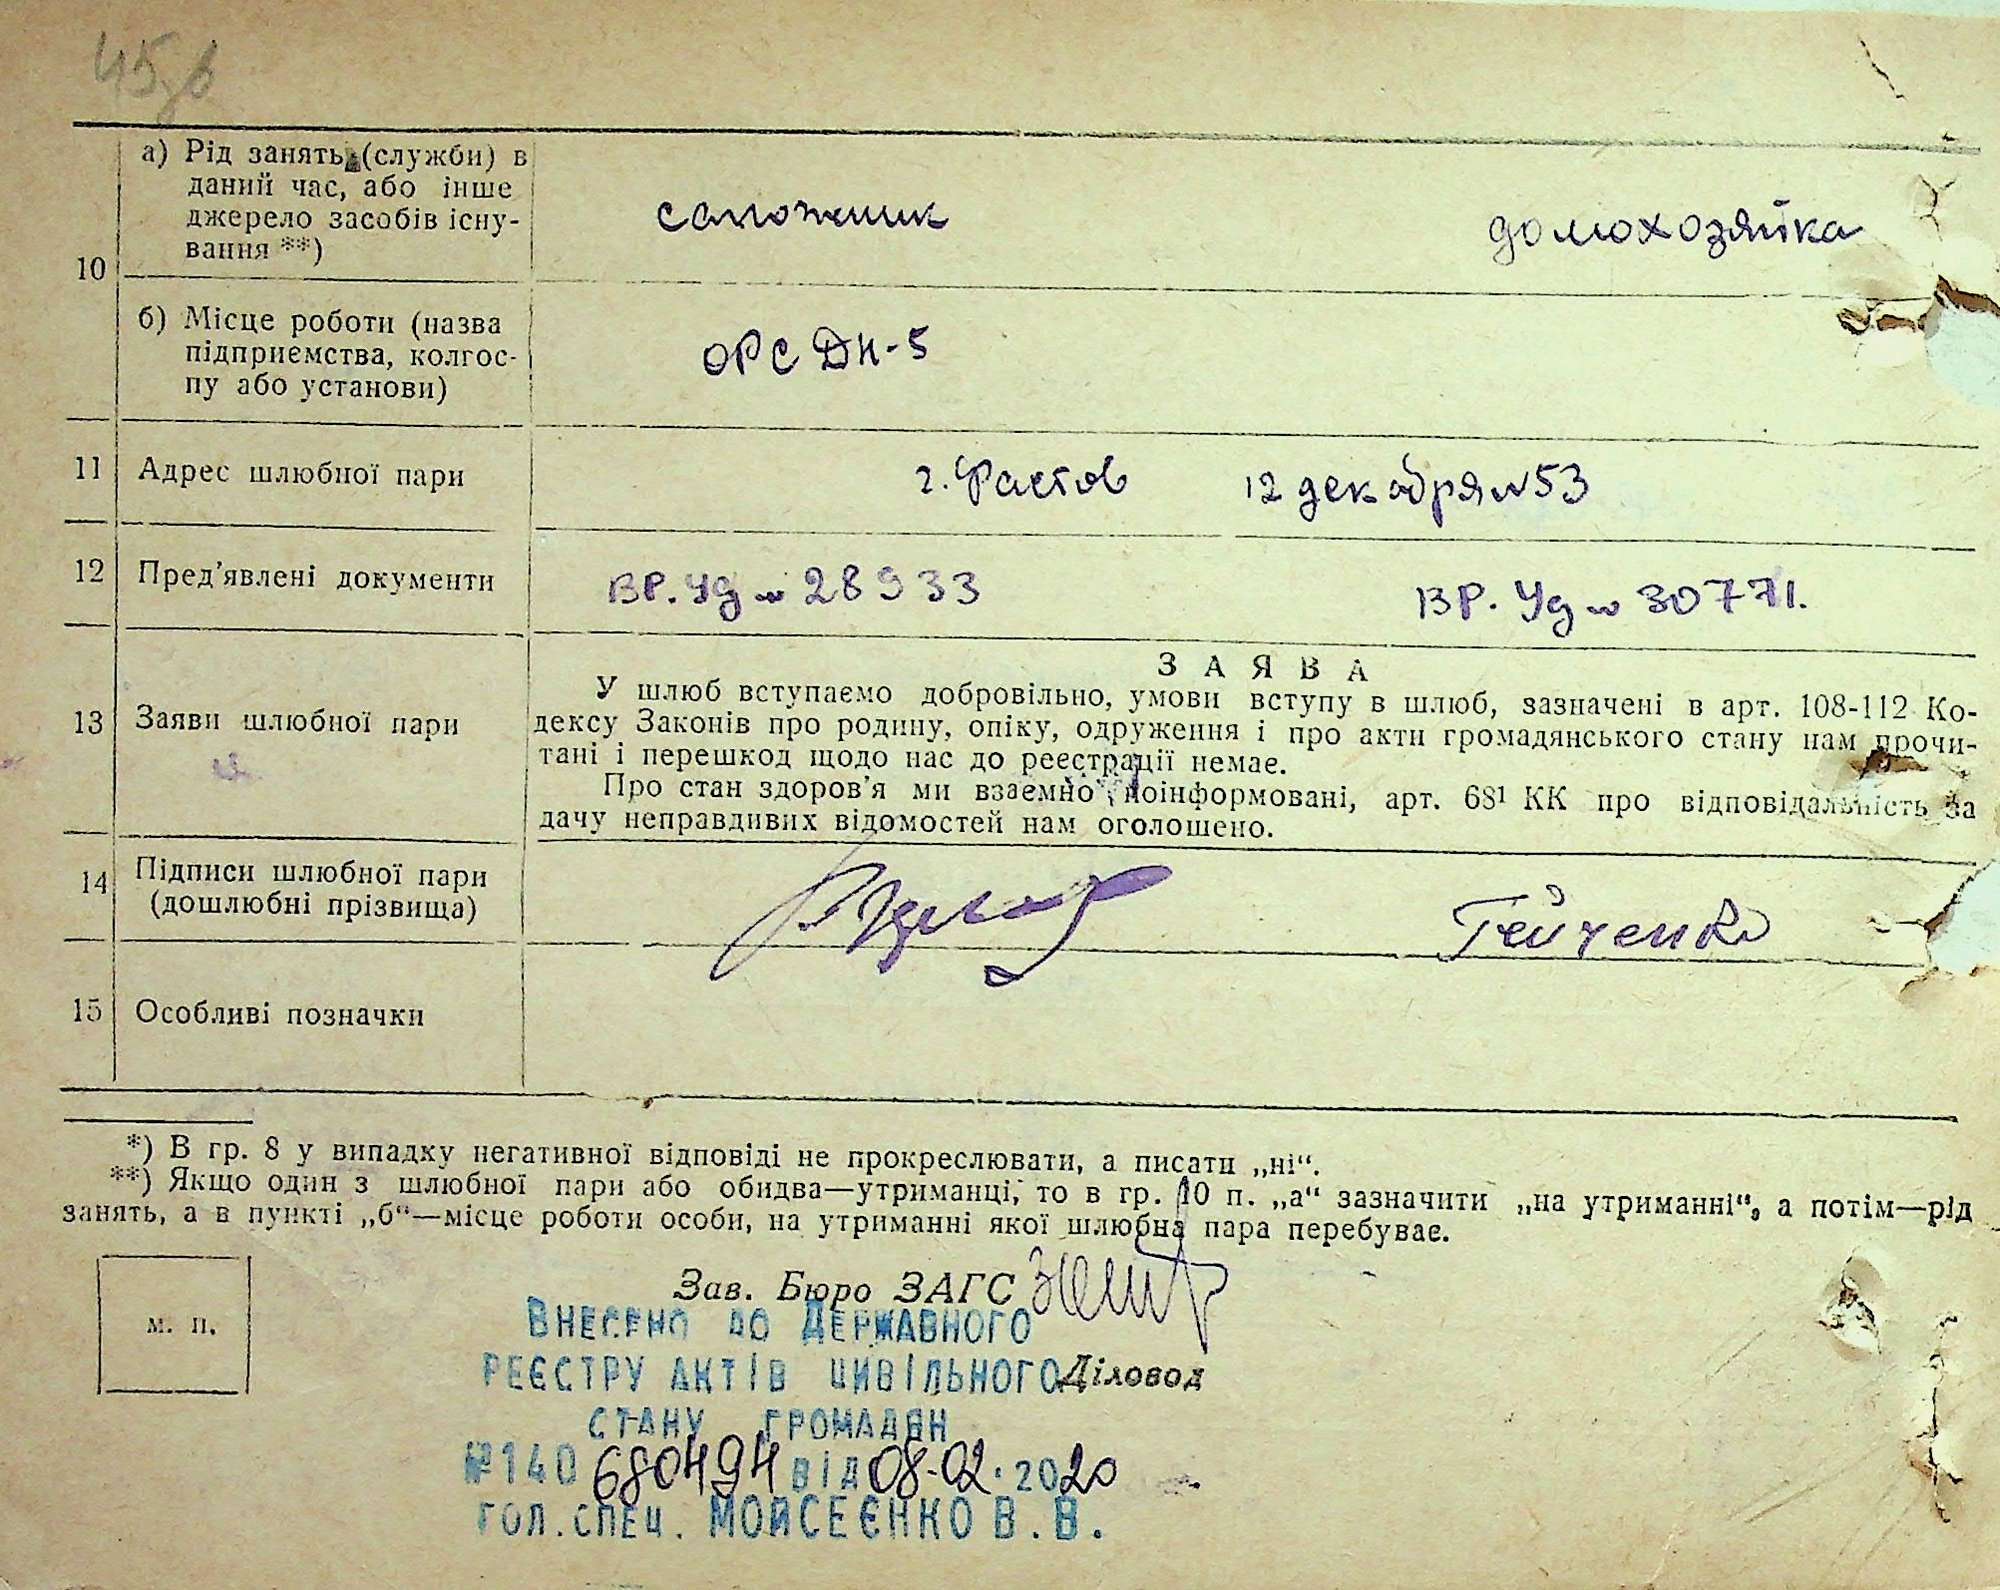 45зв
а) Рід занять (служби) в
даний час, або інше
джерело засобів існу-
вання **)
сапожник
домохозяйка
10
б) Місце роботи (назва
підприємства, колгос-
пу або установи)
ОРС ДН-5
11 Адрес шлюбної пари
г. Фастов 12 декабря № 53
12 Пред’явлені документи
ВР. Уд № 28933
ВР. Уд № 30771.
13 Заяви шлюбної пари
ЗАЯВА
У шлюб вступаємо добровільно, умови вступу в шлюб, зазначені в арт. 108-112 Ко-
дексу Законів про родину, опіку, одруження і про акти громадянського стану нам прочи-
тані і перешкод щодо нас до реєстрації немає.
Про стан здоров’я ми взаємно поінформовані, арт. 68¹ КК про відповідальність за
дачу неправдивих відомостей нам оголошено.
14 Підписи шлюбної пари
(дошлюбні прізвища)
Гейченко
15 Особливі позначки
*) В гр. 8 у випадку негативної відповіді не прокреслювати, а писати „ні“.
**) Якщо один з шлюбної пари або обидва—утриманці, то в гр. 10 п. „а“ зазначити „на утриманні“, а потім—рід
занять, а в пункті „б“—місце роботи особи, на утриманні якої шлюбна пара перебуває.
м. п.
Зав. Бюро ЗАГС
Внесено до Державного
реєстру актів цивільного
Діловод
стану громадян
№140 680494 від 08.02.2020
гол. спец. Мойсеєнко В. В.